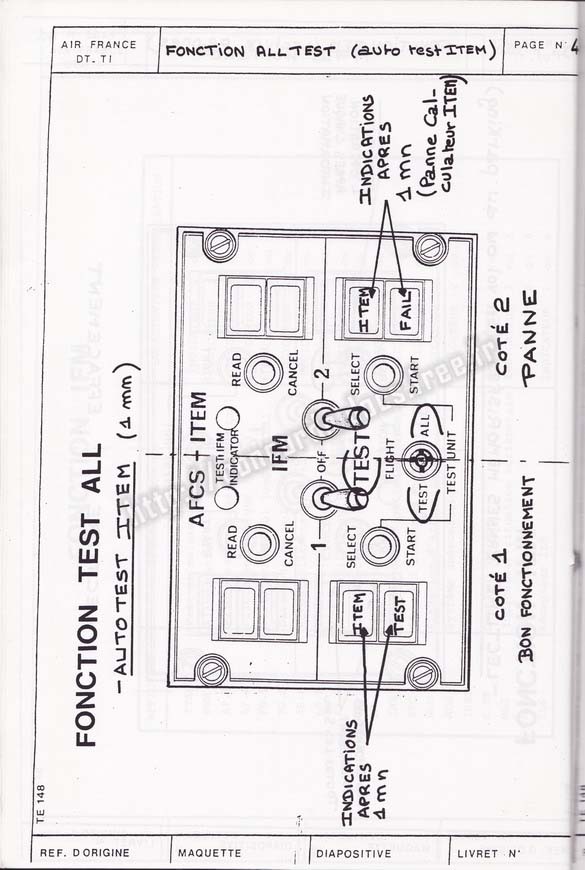 AIR FRANCE
DT. TI
FONCTION ALL TEST (auto test ITEM)
PAGE N° 4
FONCTION TEST ALL
- AUTOTEST ITEM (1 mn)
AFCS - ITEM
TEST IFM
INDICATOR
READ
CANCEL
READ
CANCEL
IFM
1
OFF
2
TEST
FLIGHT
SELECT
START
SELECT
START
TEST
ALL
TEST UNIT
ITEM
TEST
ITEM
FAIL
INDICATIONS
APRES
1 mn
INDICATIONS
APRES
1 mn
(Panne Cal-
culateur ITEM)
COTÉ 1
BON FONCTIONNEMENT
COTÉ 2
PANNE
TE 148
REF. D'ORIGINE
MAQUETTE
DIAPOSITIVE
LIVRET N°